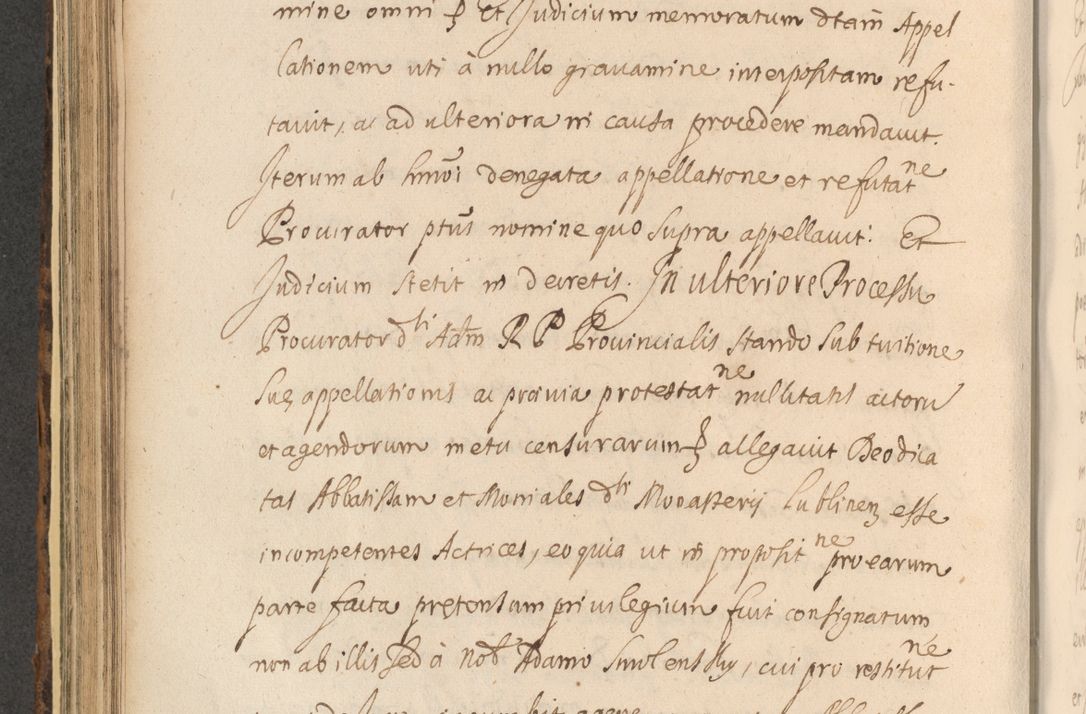 mine omni ꝑ Et Judicium memoratum dtam̃ Appel
lationem uti à nullo gravamine interpositam refu-
tavit, ac ad ulteriora in causa procedere mandavit.
Iterum ab hmõi denegata appellatione et refutatne
Procurator ptũs nomine quo supra appellavit: Et
Judicium stetit in decretis. In ulteriore Processu
Procurator dti Adm R P Provincialis stando sub tuitione
suę appellationis ac prævia protestatne nullitatis actorũ
et agendorum metu censurarum ꝑ allegavit Deodica
tas Abbatissam et Moniales dti Monasterij Lublinen esse
incompetentes Actrices, eo quia ut in propositne pro earum
parte facta prętensum privilegium fuit consignatum
non ab illis sed à Nob Adamo Smolensky, cui pro restitutne